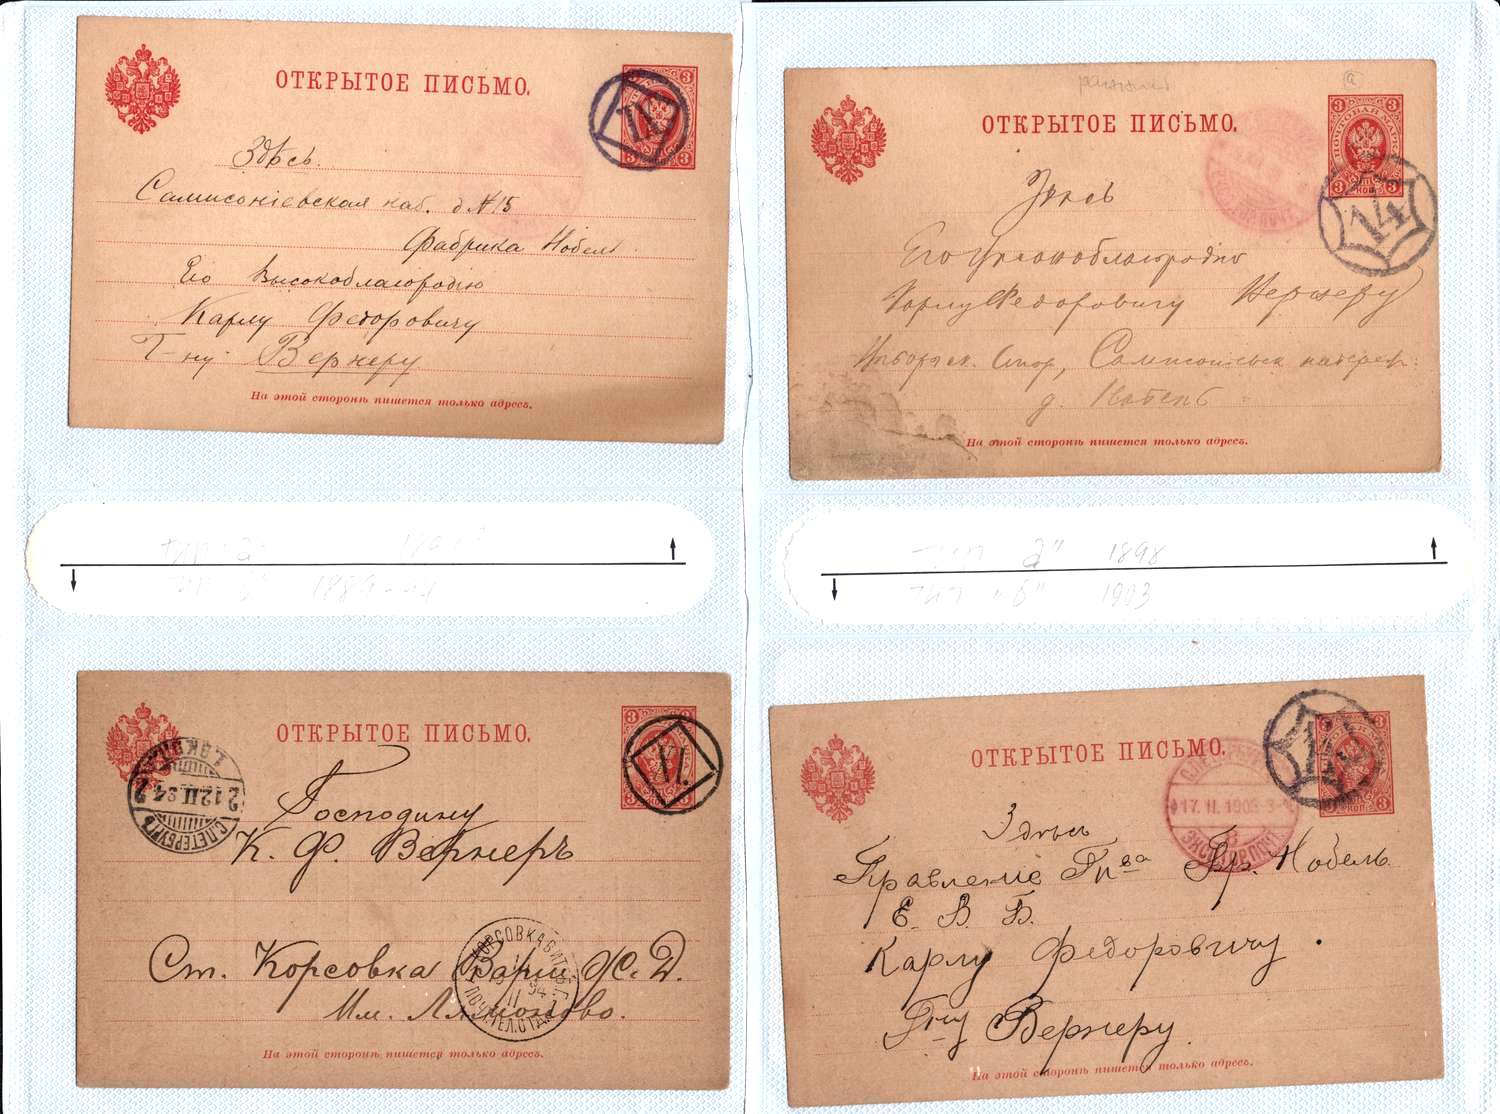 ОТКРЫТОЕ ПИСЬМО.
3
3
3
3
Здѣсь.
Сампсоніевская наб. д № 15
Фабрика Нобель
Его Высокоблагородію
Карлу Федоровичу
Г-ну Вернеру
На этой сторонѣ пишется только адресъ.
а
ОТКРЫТОЕ ПИСЬМО.
ПОЧТОВАЯ МАРКА
3
3
3
3
14
Здѣсь
Его Высокоблагородію
Карлу Федоровичу Вернеру
Выборгск. Стор,
д. Нобель
На этой сторонѣ пишется только адресъ.
тип "а" 1898
тип "б" 1903
ОТКРЫТОЕ ПИСЬМО.
3
3
3
3
VI.
С.ПЕТЕРБУРГЪ
2 12 II 94 2
Господину
К. Ф. Вернеръ
Ст. Корсовка Варш Ж. Д.
Им.
КОРСОВКА ВИТЕБ. Г.
11
94
ПОЧТ.ТЕЛ.ОТД.
На этой сторонѣ пишется только адресъ.
ОТКРЫТОЕ ПИСЬМО.
3
3
С.ПЕТЕРБУРГЪ
17. II. 1903
8
ЭКСП.ГОР.ПОЧТ.
Здѣсь
Правленіе Т-ва Бр. Нобель
Е. В. Б.
Карлу Федоровичу
Г-ну Вернеру
На этой сторонѣ пишется только адресъ.